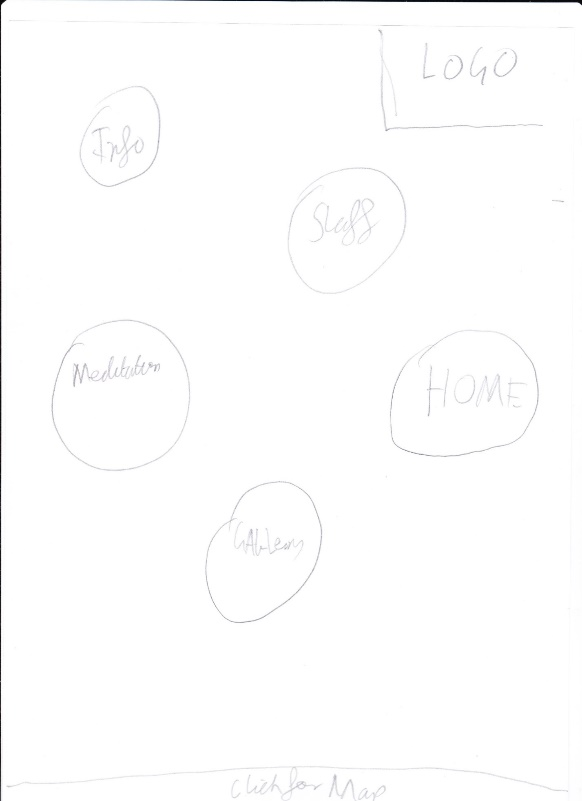 LOGO
Info
Staff
Meditation
HOME
Click for Map